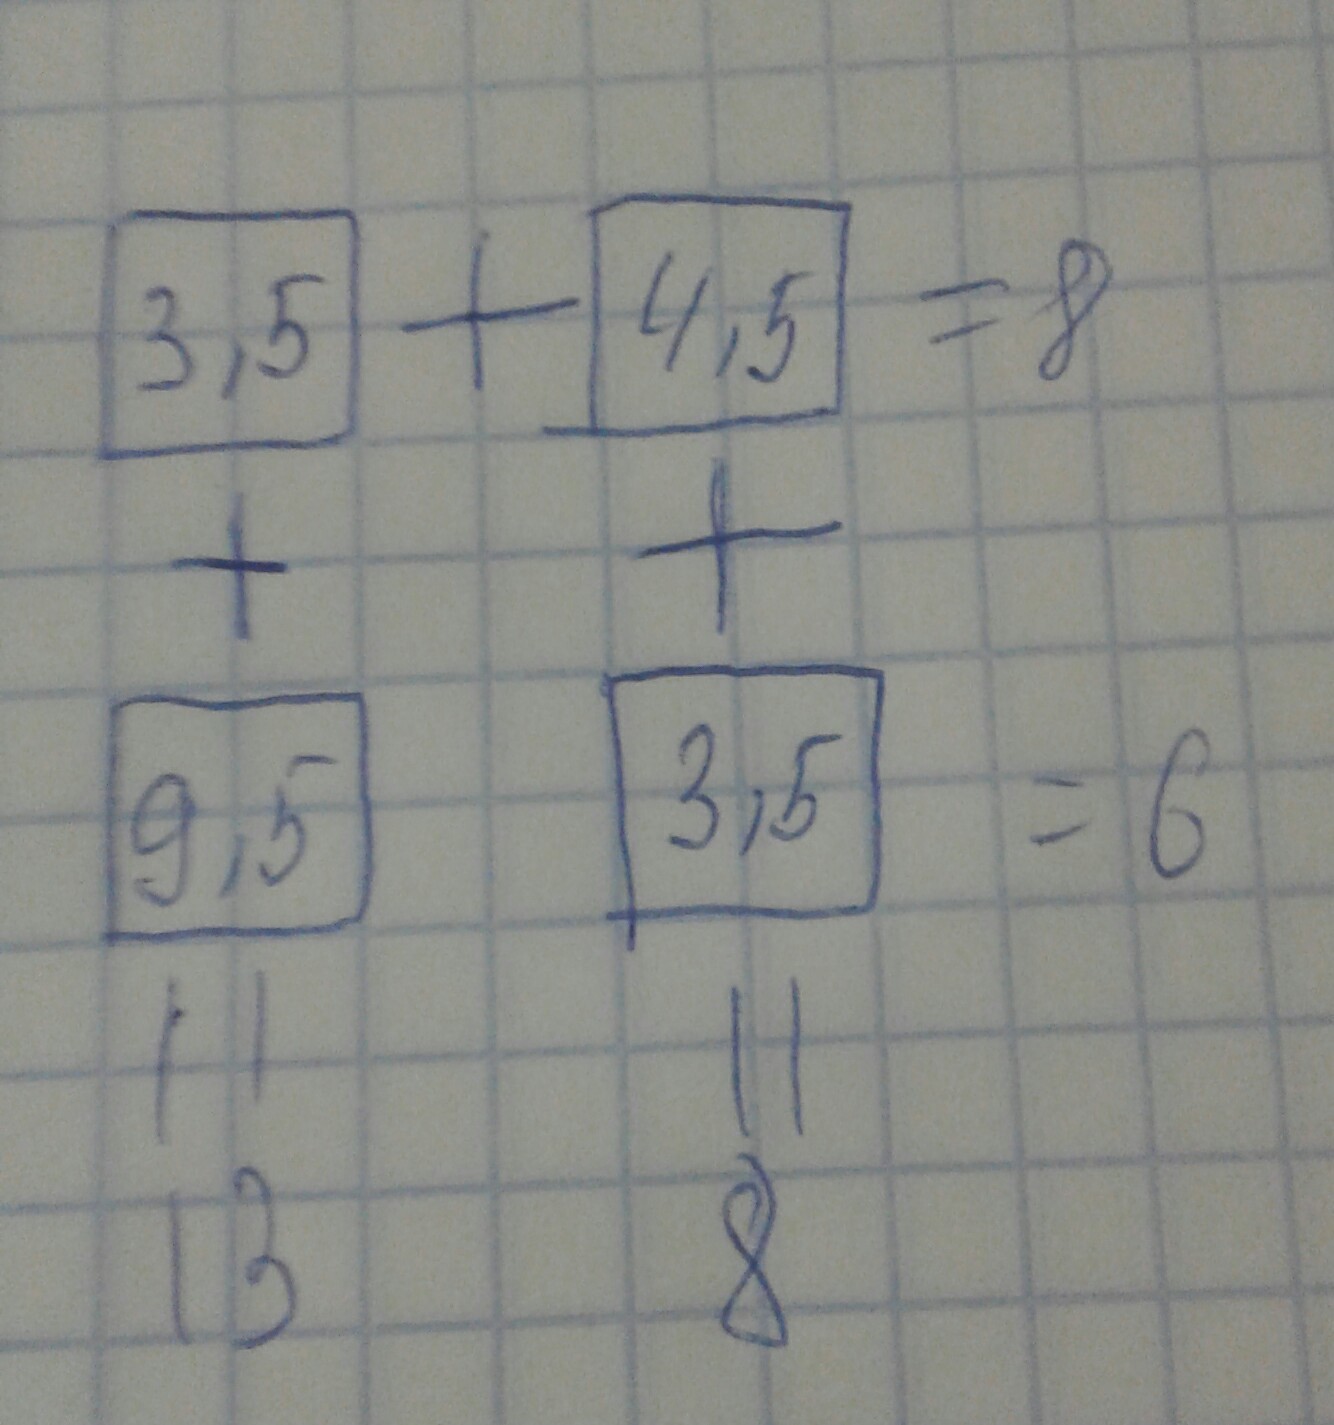 3,5 + 4,5 = 8
+ +
9,5 3,5 = 6
11 11
13 8